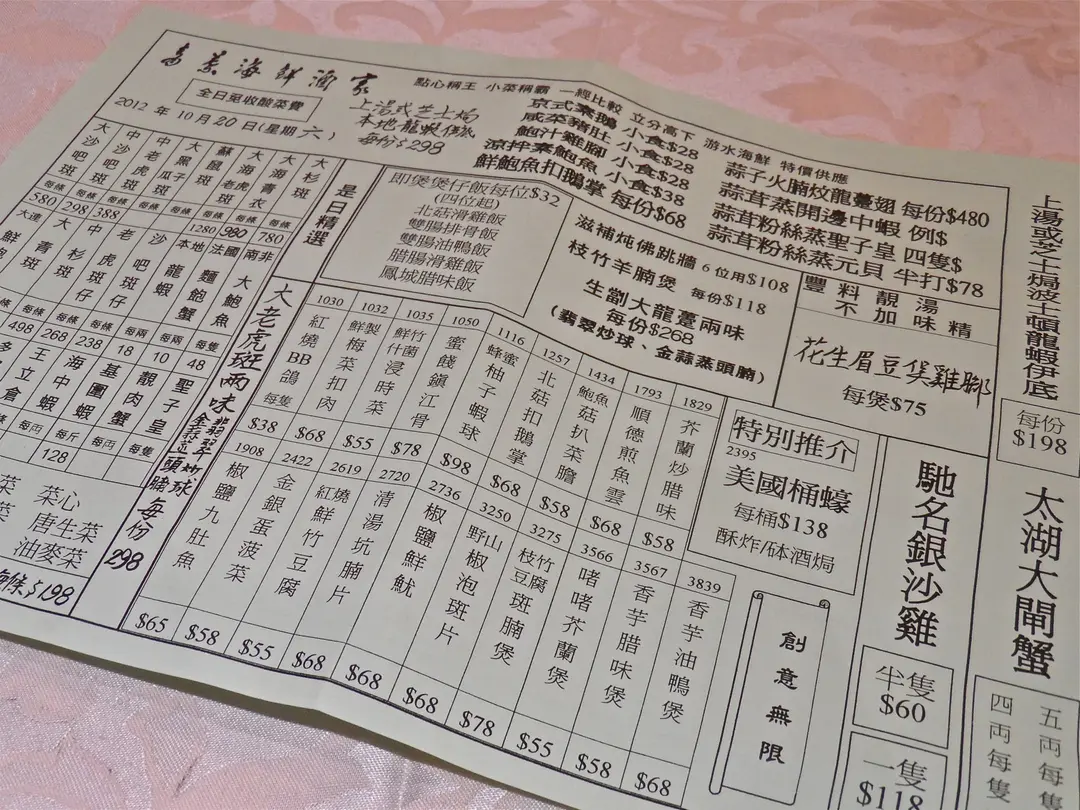 海鮮酒家
點心稱王 小菜稱霸 一經比較 立分高下 游水海鮮 特價供應
全日至收酸菜費
2012 年 10月20日(星期六)
上湯或芝士焗
本地龍蝦伊底
每份$298
京式素鵝 小食$28
咸菜豬肚 小食$28
鮑汁雞腳 小食$28
涼拌素鮑魚 小食$38
鮮鮑魚扣鵝掌 每份$68
蒜子火腩炆龍躉翅 每份$480
蒜茸蒸開邊中蝦 例$
蒜茸粉絲蒸聖子皇 四隻$
蒜茸粉絲蒸元貝 半打$78
大沙吧斑 每條 580
中沙吧斑 每條 298
中老虎斑 每條 388
大黑瓜子斑 每條
蘇鼠斑 每條 1280
大海老虎斑 每條 980
大海青衣 每條
大杉斑 每條 780
大連鮮鮑
大青斑 每條 498
中杉斑 每條 268
老虎斑仔 每條 238
沙吧斑仔
本地龍蝦 每兩 18
法國麵飽蟹 每兩 10
南非大鮑魚 每隻 48
多立倉
王中蝦
海中蝦
基圍蝦 每斤 128
靚肉蟹 每両
聖子皇 每隻
菜 菜心
菜 唐生菜
油麥菜
每條$198
是日精選
大老虎斑兩味
翡翠炒球
金蒜蒸頭腩
每份
298
即煲煲仔飯每位$32
(四位起)
北菇滑雞飯
雙腸排骨飯
雙腸油鴨飯
腊腸滑雞飯
鳳城腊味飯
滋補炖佛跳牆 6位用$108
枝竹羊腩煲 每份$118
生劏大龍躉兩味
每份$268
(翡翠炒球、金蒜蒸頭腩)
豐料靚湯
不加味精
花生眉豆煲雞腳
每煲$75
1030 紅燒BB鴿 每隻 $38
1032 鮮製梅菜扣肉 $68
1035 鮮竹什菌浸時菜 $55
1050 蜜餞鎮江骨 $78
1116 蜂蜜柚子蝦球 $98
1257 北菇扣鵝掌 $68
1434 鮑魚菇扒菜膽 $58
1793 順德煎魚雲 $68
1829 芥蘭炒腊味 $58
1908 椒鹽九肚魚 $65
2422 金銀蛋菠菜 $58
2619 紅燒鮮竹豆腐 $55
2720 清湯坑腩片 $68
2736 椒鹽鮮魷 $68
3250 野山椒泡斑片 $68
3275 枝竹豆腐斑腩煲 $78
3566 啫啫芥蘭煲 $55
3567 香芋腊味煲 $58
3839 香芋油鴨煲 $68
特別推介
2395
美國桶蠔
每桶$138
酥炸/砵酒焗
創意無限
馳名銀沙雞
半隻
$60
一隻
$118
上湯或芝士焗波士頓龍蝦伊底
每份
$198
太湖大閘蟹
五両每隻
四両每隻